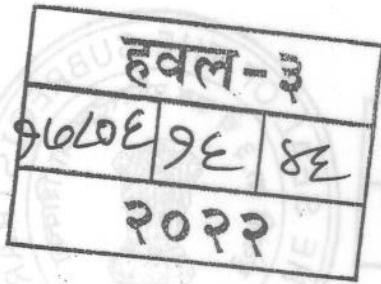 हवल-३
१७८०६ १६ ४६
२०२२